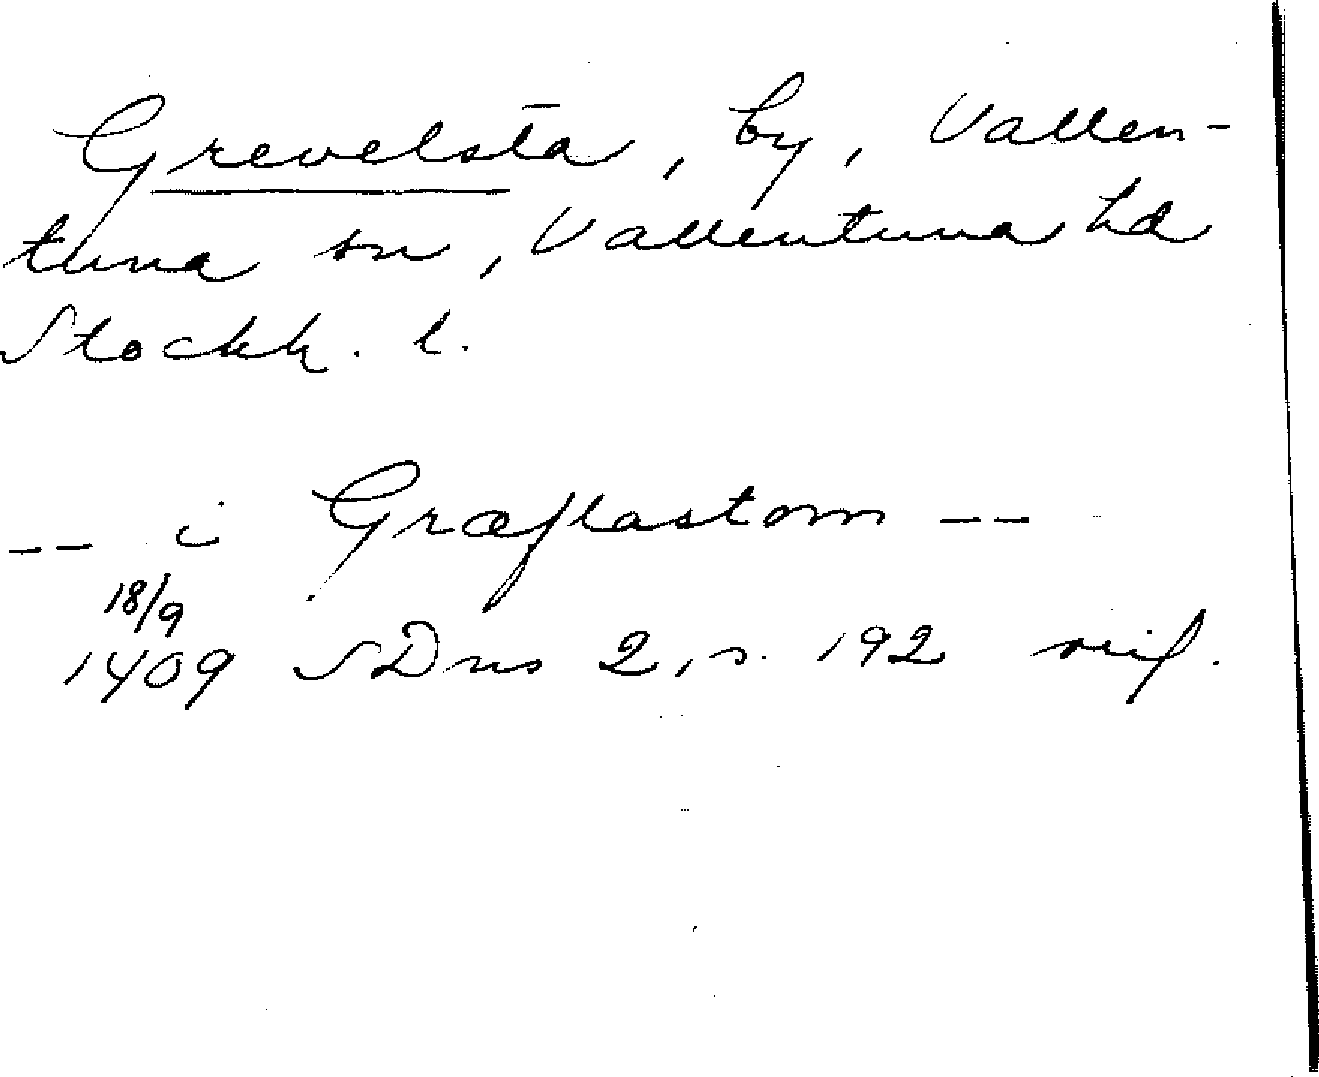 Grevelsta, by, Vallen-
tuna sn, Vallentuna hd
Stockh. l.
-- i Græflastom --
18/9
1409 SDns 2, s. 192